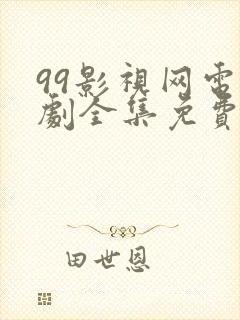 99影视网电
劇全集免費
田世恩